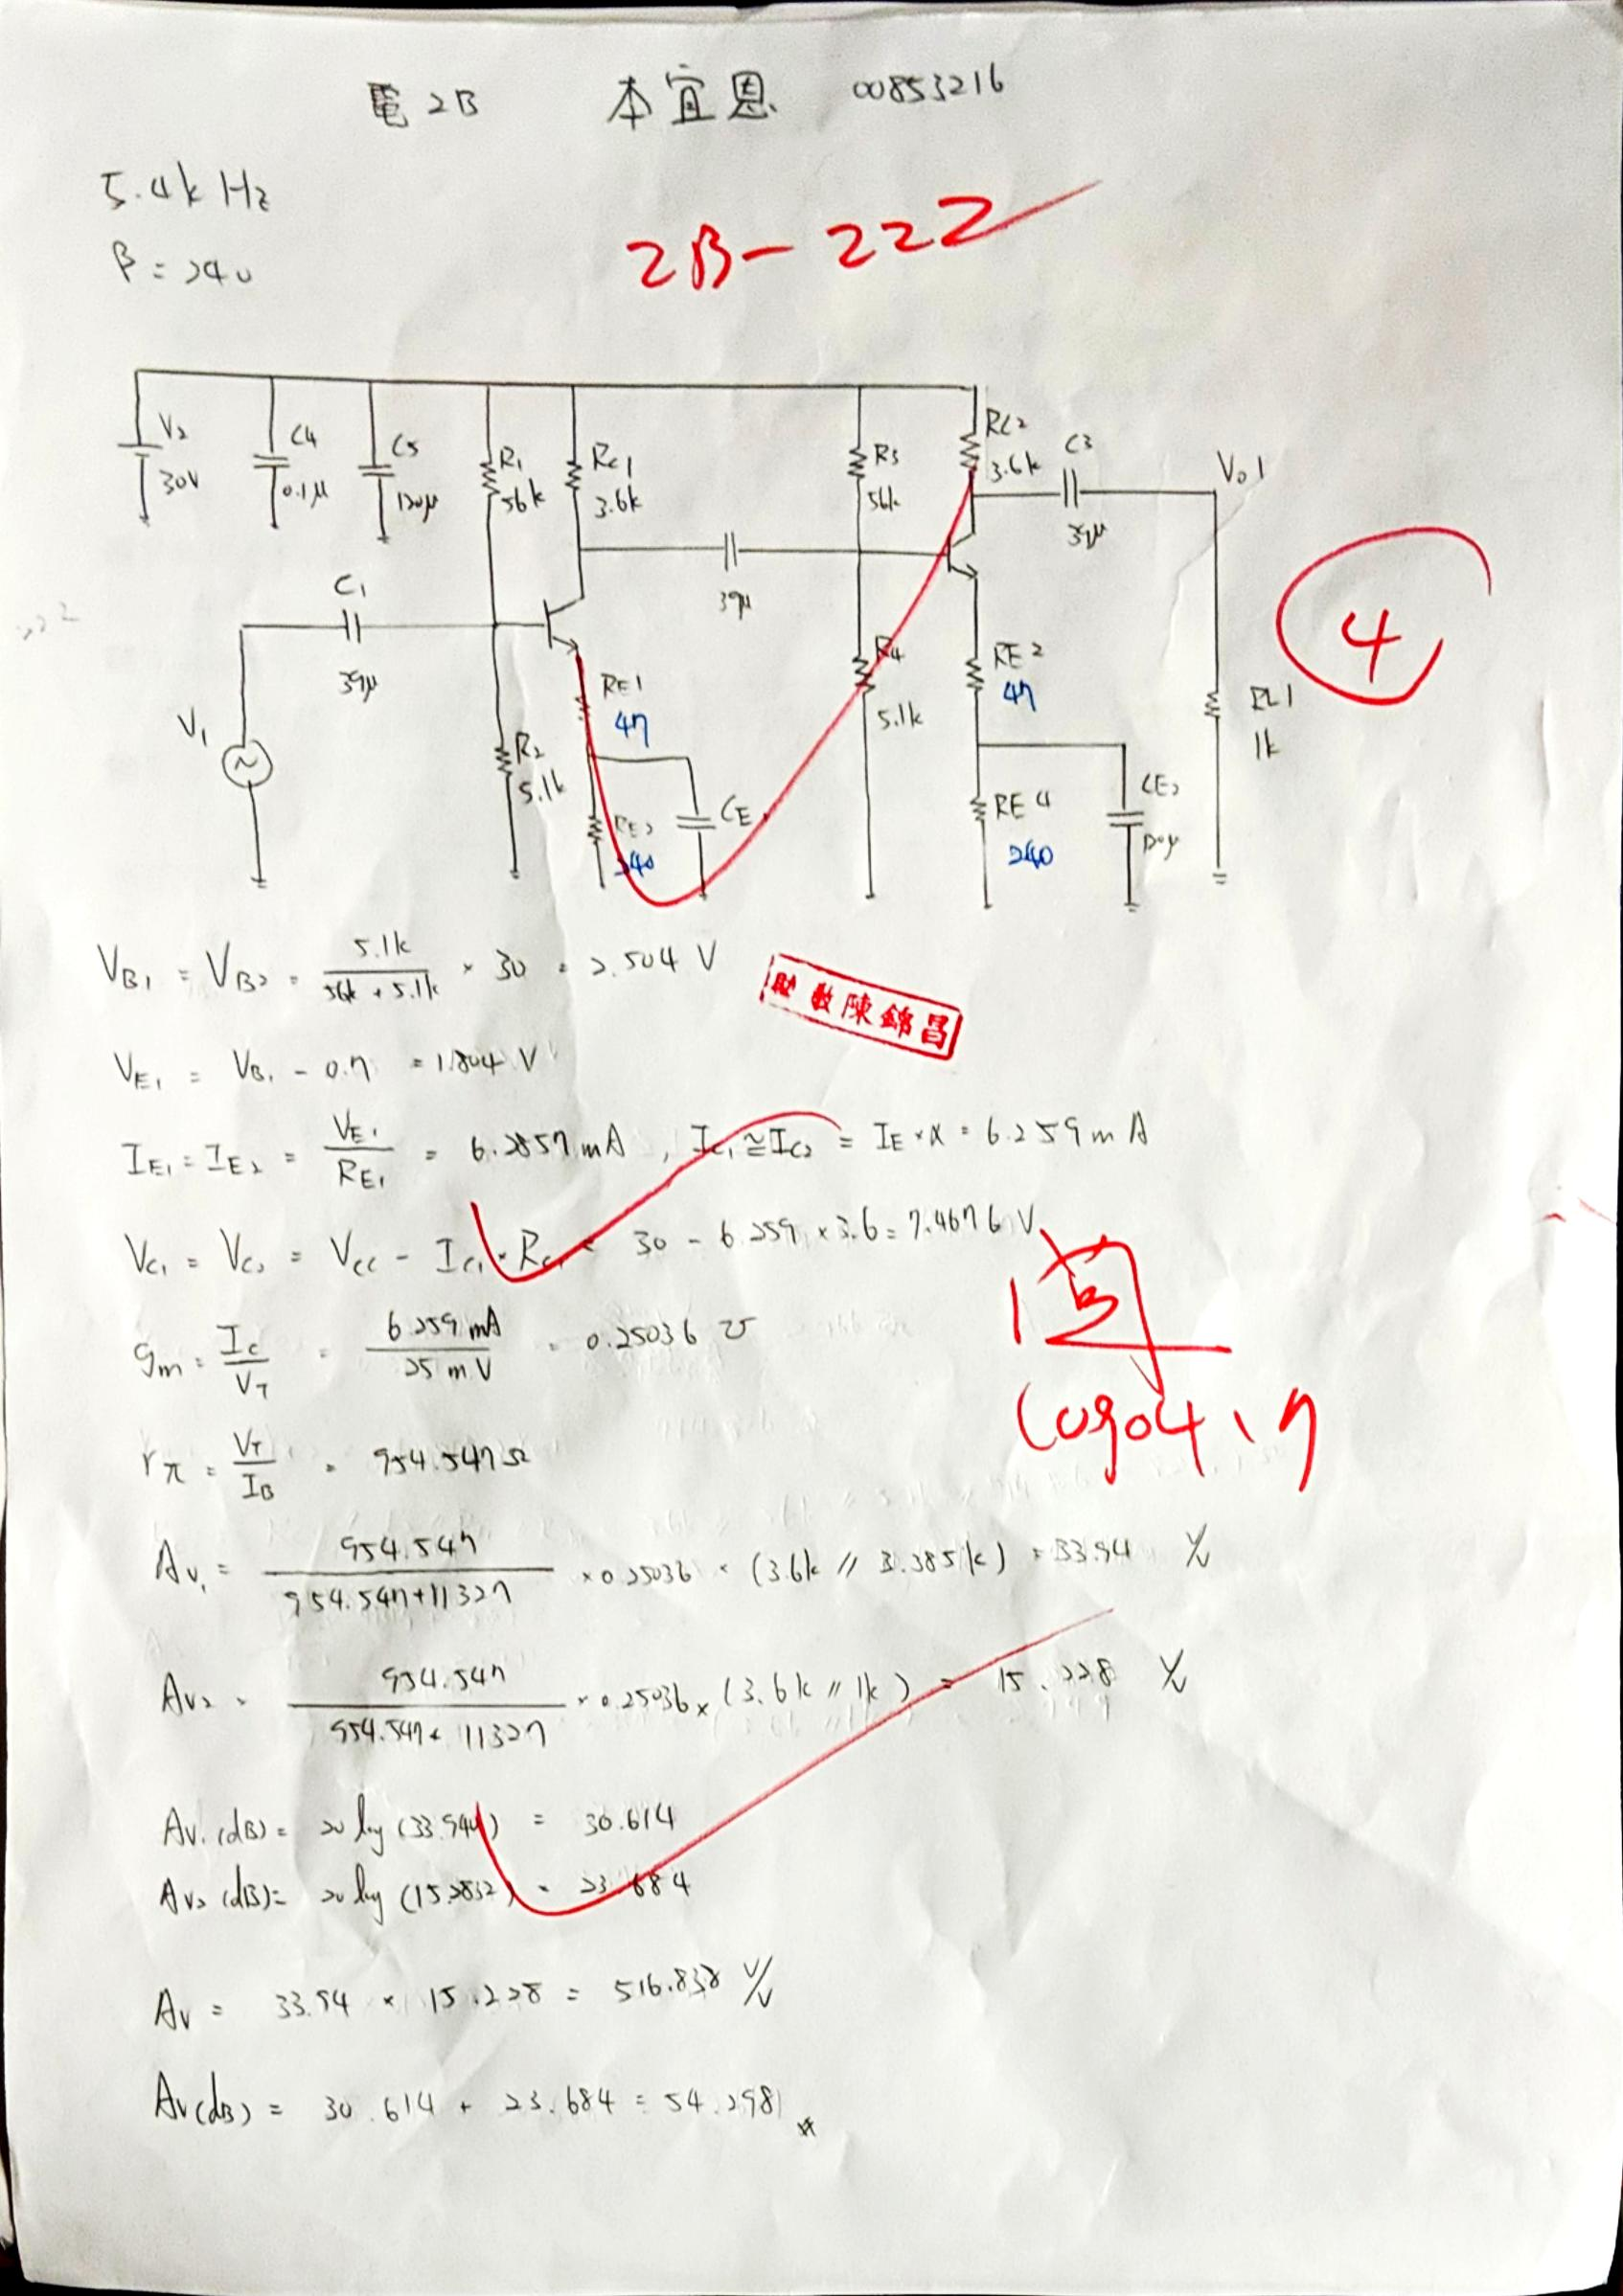 電2B 本宜恩 00853216
5.4k Hz
β = 240
2B-222
V2
30V
C4
0.1μ
C5
120μ
R1
56k
RC1
3.6k
R3
56k
RC2
3.6k
C3
39μ
Vo1
C1
39μ
39μ
V1
R2
5.1k
RE1
47
RE2
240
CE
R4
5.1k
RE2
47
RE4
240
CE2
120μ
RL1
1k
4
VB1 = VB2 = 5.1k / (56k + 5.1k) × 30 = 2.504 V
助教陳錦昌
VE1 = VB1 - 0.7 = 1.804 V
IE1 = IE2 = VE1 / RE1 = 6.2857 mA , IC1 ≅ IC2 = IE × α = 6.259 m A
VC1 = VC2 = VCC - IC1 · RC1 = 30 - 6.259 × 3.6 = 7.4676 V
gm = IC / VT = 6.259 mA / 25 m V = 0.25036 ℧
rπ = VT / IB = 954.547 Ω
1090417
Av1 = 954.547 / (954.547 + 11327) × 0.25036 × (3.6k // 3.385k) = 33.94 V/V
Av2 = 954.547 / (954.547 + 11327) × 0.25036 × (3.6k // 1k) = 15.228 V/V
Av1 (dB) = 20 log (33.94) = 30.614
Av2 (dB) = 20 log (15.2832) = 23.684
Av = 33.94 × 15.228 = 516.838 V/V
Av(dB) = 30.614 + 23.684 = 54.298 #